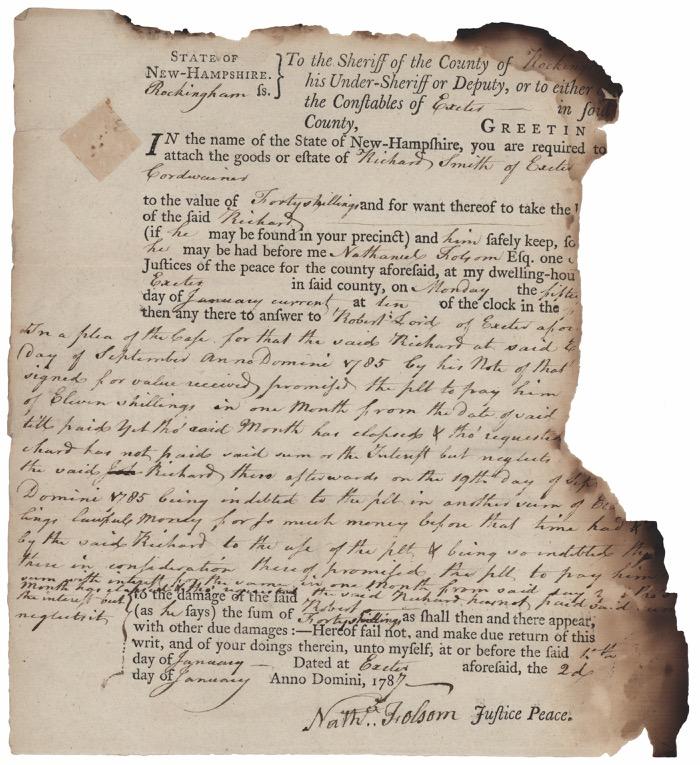 STATE OF
NEW-HAMPSHIRE.
Rockingham ſs.
To the Sheriff of the County of
his Under-Sheriff or Deputy, or to either
the Conſtables of Exeter in ſaid
County, GREETIN
IN the name of the State of New-Hampſhire, you are required to
attach the goods or eſtate of Richard Smith of Exeter
Cordwainer
to the value of Forty shillings and for want thereof to take the
of the ſaid Richard
(if he may be found in your precinct) and him ſafely keep, ſo
he may be had before me Nathaniel Folsom Esq. one
Juſtices of the peace for the county aforeſaid, at my dwelling-hou
Exeter in ſaid county, on Monday the fifte
day of January current at ten of the clock in the
then any there to answer to Robert Lord of Exeter afor
In a plea of the Case for that the said Richard at said E
day of September Anno Domini 1785 by his Note of that
signed for value received promised the plt to pay him
of Eleven shillings in one Month from the date of said
till paid Yet tho' said Month has elapsed & tho' requested
chard has not paid said sum or the Interest but neglects
the said Richard there afterwards on the 19th day of Sep
Domini 1785 being indebted to the plt in another sum of
lings lawful Money for so much money before that time had &
by the said Richard to the use of the plt & being so indebted the
there in consideration thereof promised the plt to pay him
sum with interest for the same in one month from said day
Month has the said Richard has not paid said sum
the interest but
neglects it
to the damage of the ſaid Robert
(as he ſays) the sum of Forty shillings as ſhall then and there appear,
with other due damages :—Hereof fail not, and make due return of this
writ, and of your doings therein, unto myſelf, at or before the ſaid 15th
day of January Dated at Exeter aforeſaid, the 2d
day of January Anno Domini, 1787
Nathel. Folsom Juſtice Peace.